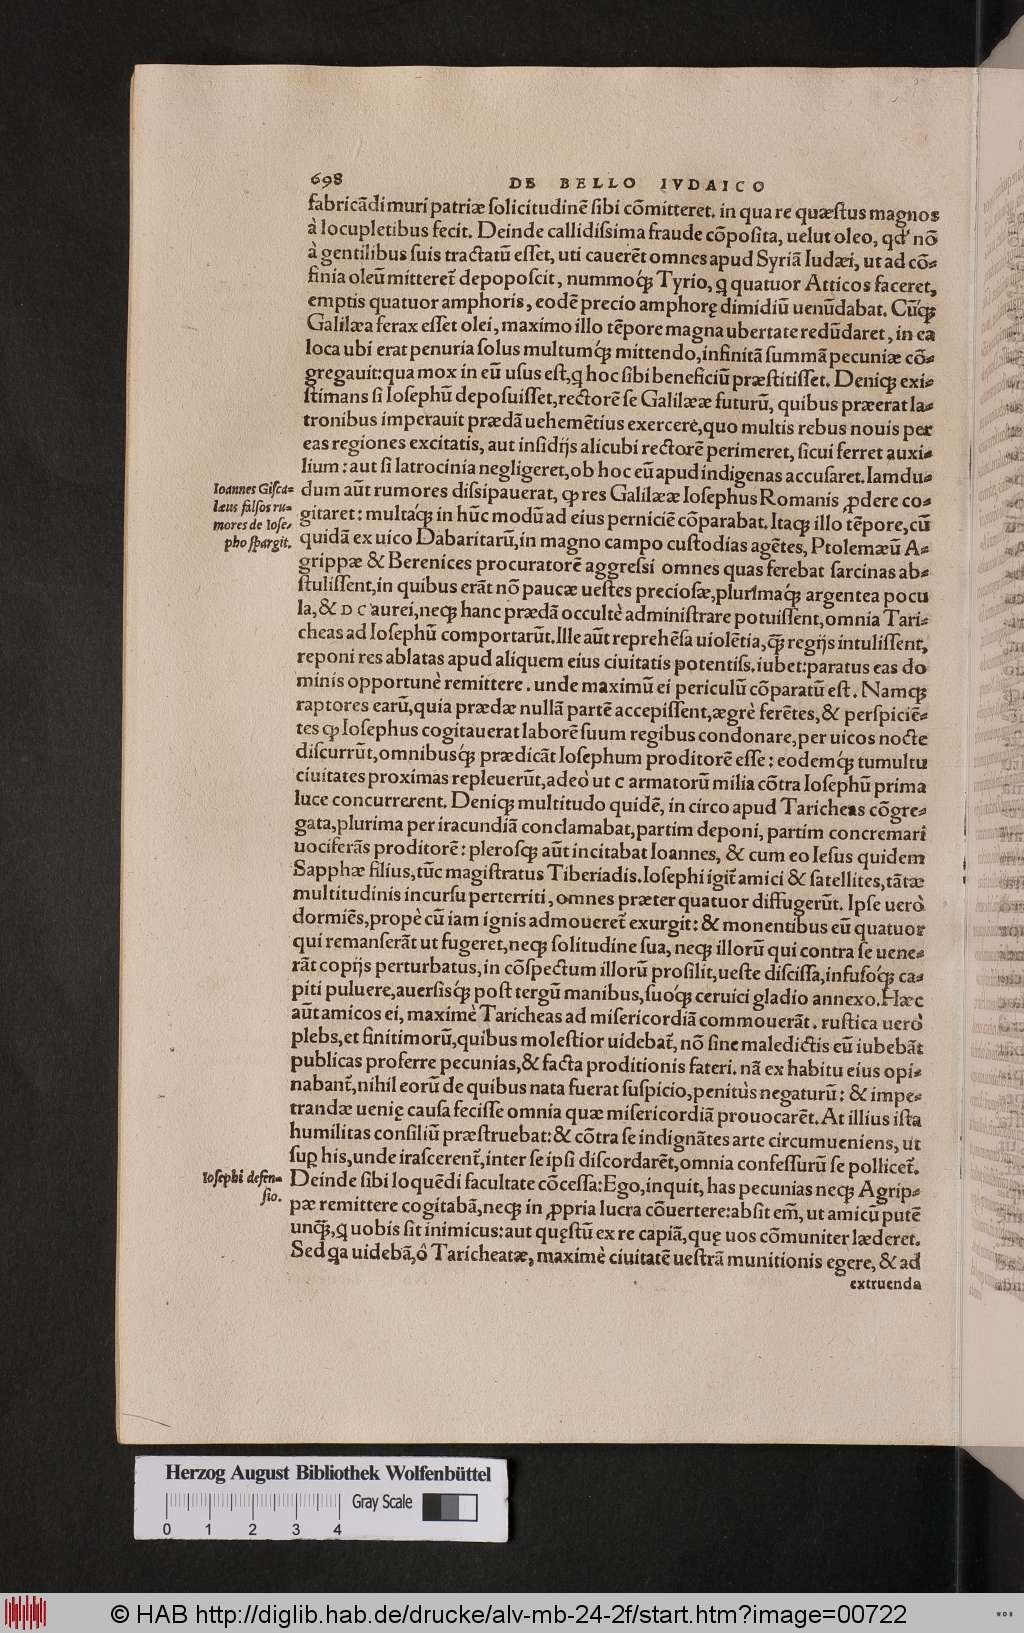 698 DE BELLO IVDAICO
fabricādi muri patriæ ſolicitudinē ſibi cōmitteret. in qua re quæſtus magnos
à locupletibus fecit. Deinde callidiſsima fraude cōpoſita, uelut oleo, qđ nō
à gentilibus ſuis tractatū eſſet, uti cauerēt omnes apud Syriā Iudæi, ut ad cō-
finia oleū mitteret̃ depopoſcit, nummoq́ꝫ Tyrio, q quatuor Atticos faceret,
emptis quatuor amphoris, eodē precio amphorę dimidiū uenūdabat. Cūq́ꝫ
Galilæa ferax eſſet olei, maximo illo tēpore magna ubertate redūdaret, in ea
loca ubi erat penuria ſolus multumq́ꝫ mittendo, infinitā ſummā pecuniæ cō-
gregauit: qua mox in eū uſus eſt, q hoc ſibi beneficiū præſtitiſſet. Deniqꝫ exi-
ſtimans ſi Ioſephū depoſuiſſet, rectorē ſe Galilææ futurū, quibus præerat la-
tronibus imperauit prædā uehemētius exercere, quo multis rebus nouis per
eas regiones excitatis, aut inſidijs alicubi rectorē perimeret, ſicui ferret auxi-
lium: aut ſi latrocinia negligeret, ob hoc eū apud indigenas accuſaret. Iamdu-
Ioannes Giſca-
læus falſos ru-
mores de Ioſe-
pho ſpargit.
dum aūt rumores diſsipauerat, ꝙ res Galilææ Ioſephus Romanis ꝓdere co-
gitaret: multaq́ꝫ in hūc modū ad eius perniciē cōparabat. Itaqꝫ illo tēpore, cū
quidā ex uico Dabaritarū, in magno campo cuſtodias agētes, Ptolemæū A-
grippæ & Berenices procuratorē aggreſsi omnes quas ferebat ſarcinas ab-
ſtuliſſent, in quibus erāt nō paucæ ueſtes precioſæ, plurimaq́ꝫ argentea pocu
la, & D C aurei, neqꝫ hanc prædā occultè adminiſtrare potuiſſent, omnia Tari-
cheas ad Ioſephū comportarūt. Ille aūt reprehēſa uiolētia, ꝗ̃ regijs intuliſſent,
reponi res ablatas apud aliquem eius ciuitatis potentiſs. iubet: paratus eas do
minis opportunè remittere. unde maximū ei periculū cōparatū eſt. Namqꝫ
raptores earū, quia prædæ nullā partē accepiſſent, ægrè ferētes, & perſpiciē-
tes ꝙ Ioſephus cogitauerat laborē ſuum regibus condonare, per uicos nocte
diſcurrūt, omnibusq́ꝫ prædicāt Ioſephum proditorē eſſe: eodemq́ꝫ tumultu
ciuitates proximas repleuerūt, adeò ut C armatorū milia cōtra Ioſephū prima
luce concurrerent. Deniqꝫ multitudo quidē, in circo apud Taricheas cōgre-
gata, plurima per iracundiā conclamabat, partim deponi, partim concremari
uociferās proditorē: pleroſqꝫ aūt incitabat Ioannes, & cum eo Ieſus quidem
Sapphæ filius, tūc magiſtratus Tiberiadis. Ioſephi igit̃ amici & ſatellites, tātæ
multitudinis incurſu perterriti, omnes præter quatuor diffugerūt. Ipſe uerò
dormiēs, propè cū iam ignis admoueret̃ exurgit: & monentibus eū quatuor
qui remanſerāt ut fugeret, neqꝫ ſolitudine ſua, neqꝫ illorū qui contra ſe uene-
rāt copijs perturbatus, in cōſpectum illorū proſilit, ueſte diſciſſa, infuſoq́ꝫ ca-
piti puluere, auerſisq́ꝫ poſt tergū manibus, ſuoq́ꝫ ceruici gladio annexo. Hæc
aūt amicos ei, maximè Taricheas ad miſericordiā commouerāt. ruſtica uerò
plebs, et finitimorū, quibus moleſtior uidebat̃, nō ſine maledictis eū iubebāt
publicas proferre pecunias, & facta proditionis fateri. nā ex habitu eius opi-
nabant̃, nihil eorū de quibus nata fuerat ſuſpicio, penitùs negaturū: & impe-
trandæ uenię cauſa feciſſe omnia quæ miſericordiā prouocarēt. At illius iſta
humilitas conſiliū præſtruebat: & cōtra ſe indignātes arte circumueniens, ut
ſuꝑ his, unde iraſcerent̃, inter ſe ipſi diſcordarēt, omnia confeſſurū ſe pollicet̃.
Ioſephi defen-
ſio.
Deinde ſibi loquēdi facultate cōceſſa: Ego, inquit, has pecunias neqꝫ Agrip-
pæ remittere cogitabā, neqꝫ in ꝓpria lucra cōuertere: abſit em̄, ut amicū putē
unꝗ̃, q uobis ſit inimicus: aut quęſtū ex re capiā, quę uos cōmuniter læderet.
Sed qa uidebā, ô Taricheatæ, maximè ciuitatē ueſtrā munitionis egere, & ad
extruenda
Herzog August Bibliothek Wolfenbüttel
Gray Scale
0 1 2 3 4
© HAB http://diglib.hab.de/drucke/alv-mb-24-2f/start.htm?image=00722